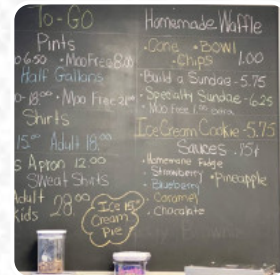 To-GO
Pints
6.50 • Moo Free 8.00
Half Gallons
18.00 • Moo Free 21.00
Shirts
15.00 Adult 18.00
s Apron 12.00
Sweat Shirts
Adult 28.00
Kids
Ice 15.00
Cream
Pie
Homemade Waffle
• Cone • BOWl
• Chips 1.00
• Build a Sundae - 5.75
• Specialty Sundae - 6.25
• Moo Free 1.00 extra
Ice Cream Cookie - 5.75
Sauces .85¢
• Homemade Fudge
• Strawberry • Pineapple
• Blueberry
• Caramel
• Chocolate